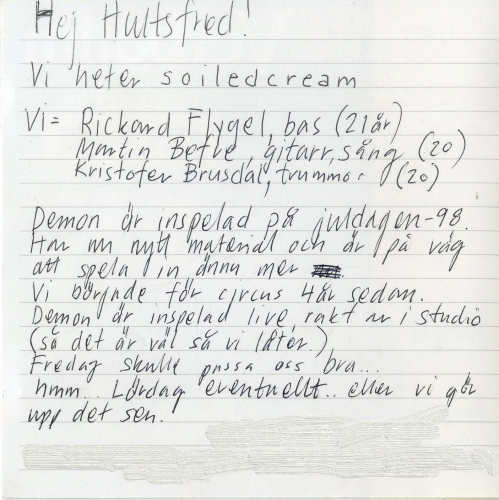 Hej Hultsfred!
Vi heter soiledcream
Vi = Rickard Flygel, bas (21 år)
Martin Befve, gitarr, sång (20)
Kristofer Brusdal, trummor (20)
Demon är inspelad på juldagen -98.
Har nu nytt material och är på väg
att spela in ännu mer
Vi började för circus 4 år sedan.
Demon är inspelad live, rakt ner i studio
(så det är väl så vi låter.)
Fredag skulle passa oss bra...
hmm... Lördag eventuellt.. eller vi gör
upp det sen.